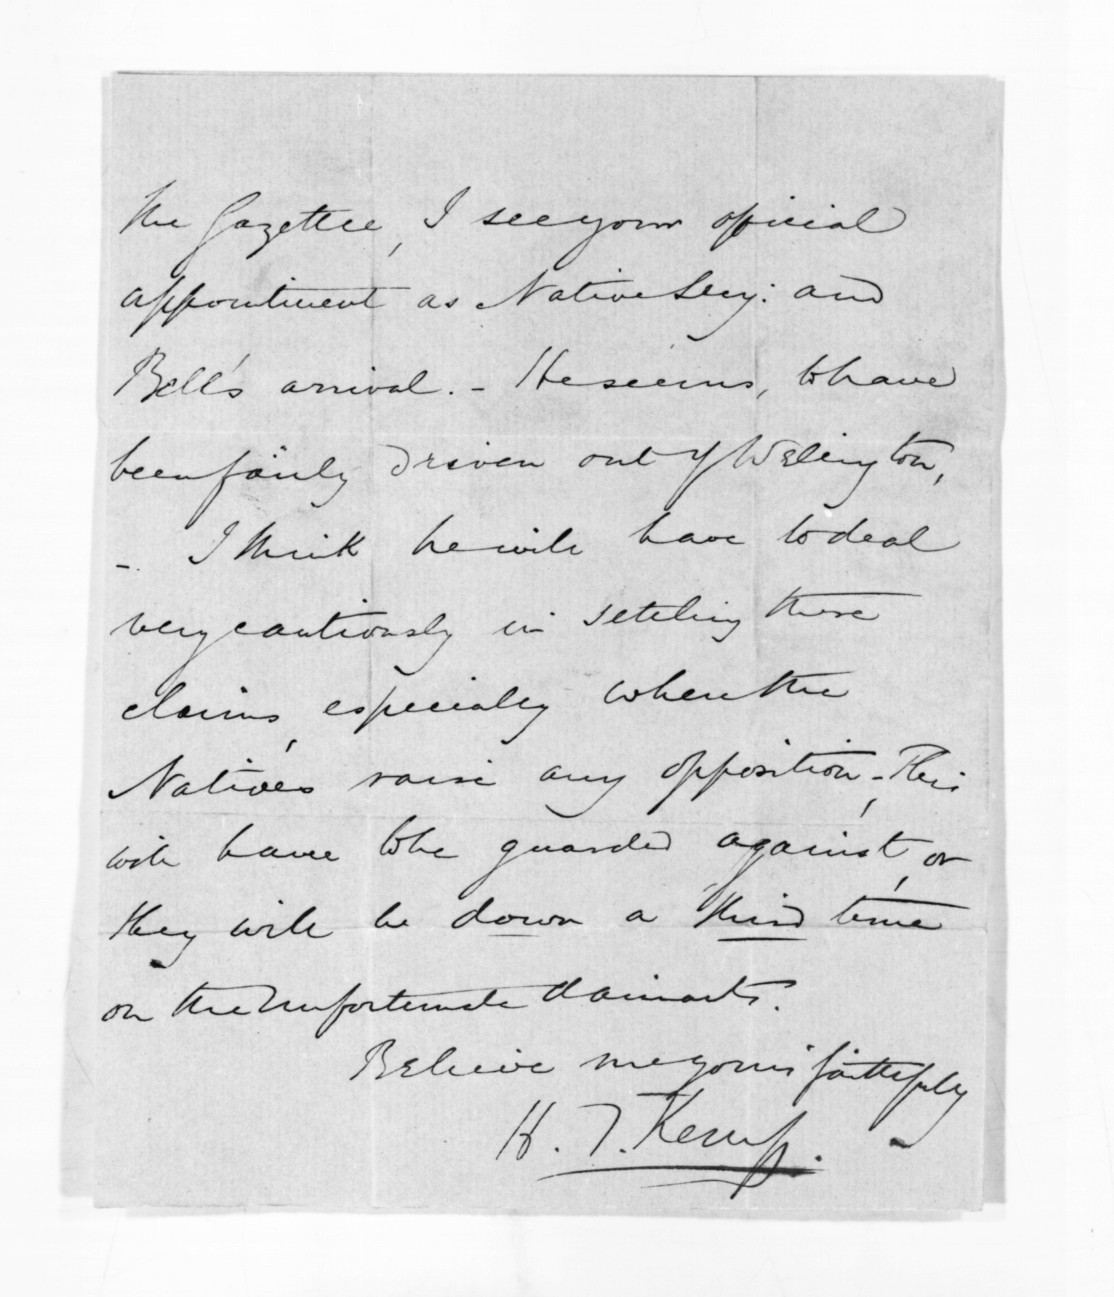 the Gazettee, I see your official
appointment as Native Secy: and
Bell's arrival. - He seems, to have
been fairly driven out of Wellington,
- I think he will have to deal
very cautiously in setteling these
claims, especially when the
Natives raise any opposition, - This
will have to be guarded against, or
they will be down a third time
on the unfortunate Claimants.
Believe me yours faithfully
H. T. Kemp.